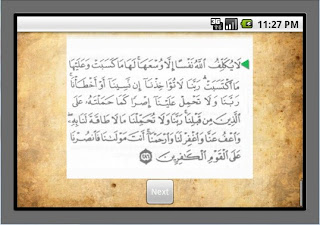 3G
11:27 PM
لَا يُكَلِّفُ اللَّهُ نَفْسًا إِلَّا وُسْعَهَا لَهَا مَا كَسَبَتْ وَعَلَيْهَا
مَا اكْتَسَبَتْ رَبَّنَا لَا تُؤَاخِذْنَا إِن نَّسِينَا أَوْ أَخْطَأْنَا
رَبَّنَا وَلَا تَحْمِلْ عَلَيْنَا إِصْرًا كَمَا حَمَلْتَهُ عَلَى
الَّذِينَ مِن قَبْلِنَا رَبَّنَا وَلَا تُحَمِّلْنَا مَا لَا طَاقَةَ لَنَا بِهِ
وَاعْفُ عَنَّا وَاغْفِرْ لَنَا وَارْحَمْنَا أَنتَ مَوْلَانَا فَانصُرْنَا
عَلَى الْقَوْمِ الْكَافِرِينَ ٢٨٦
Next